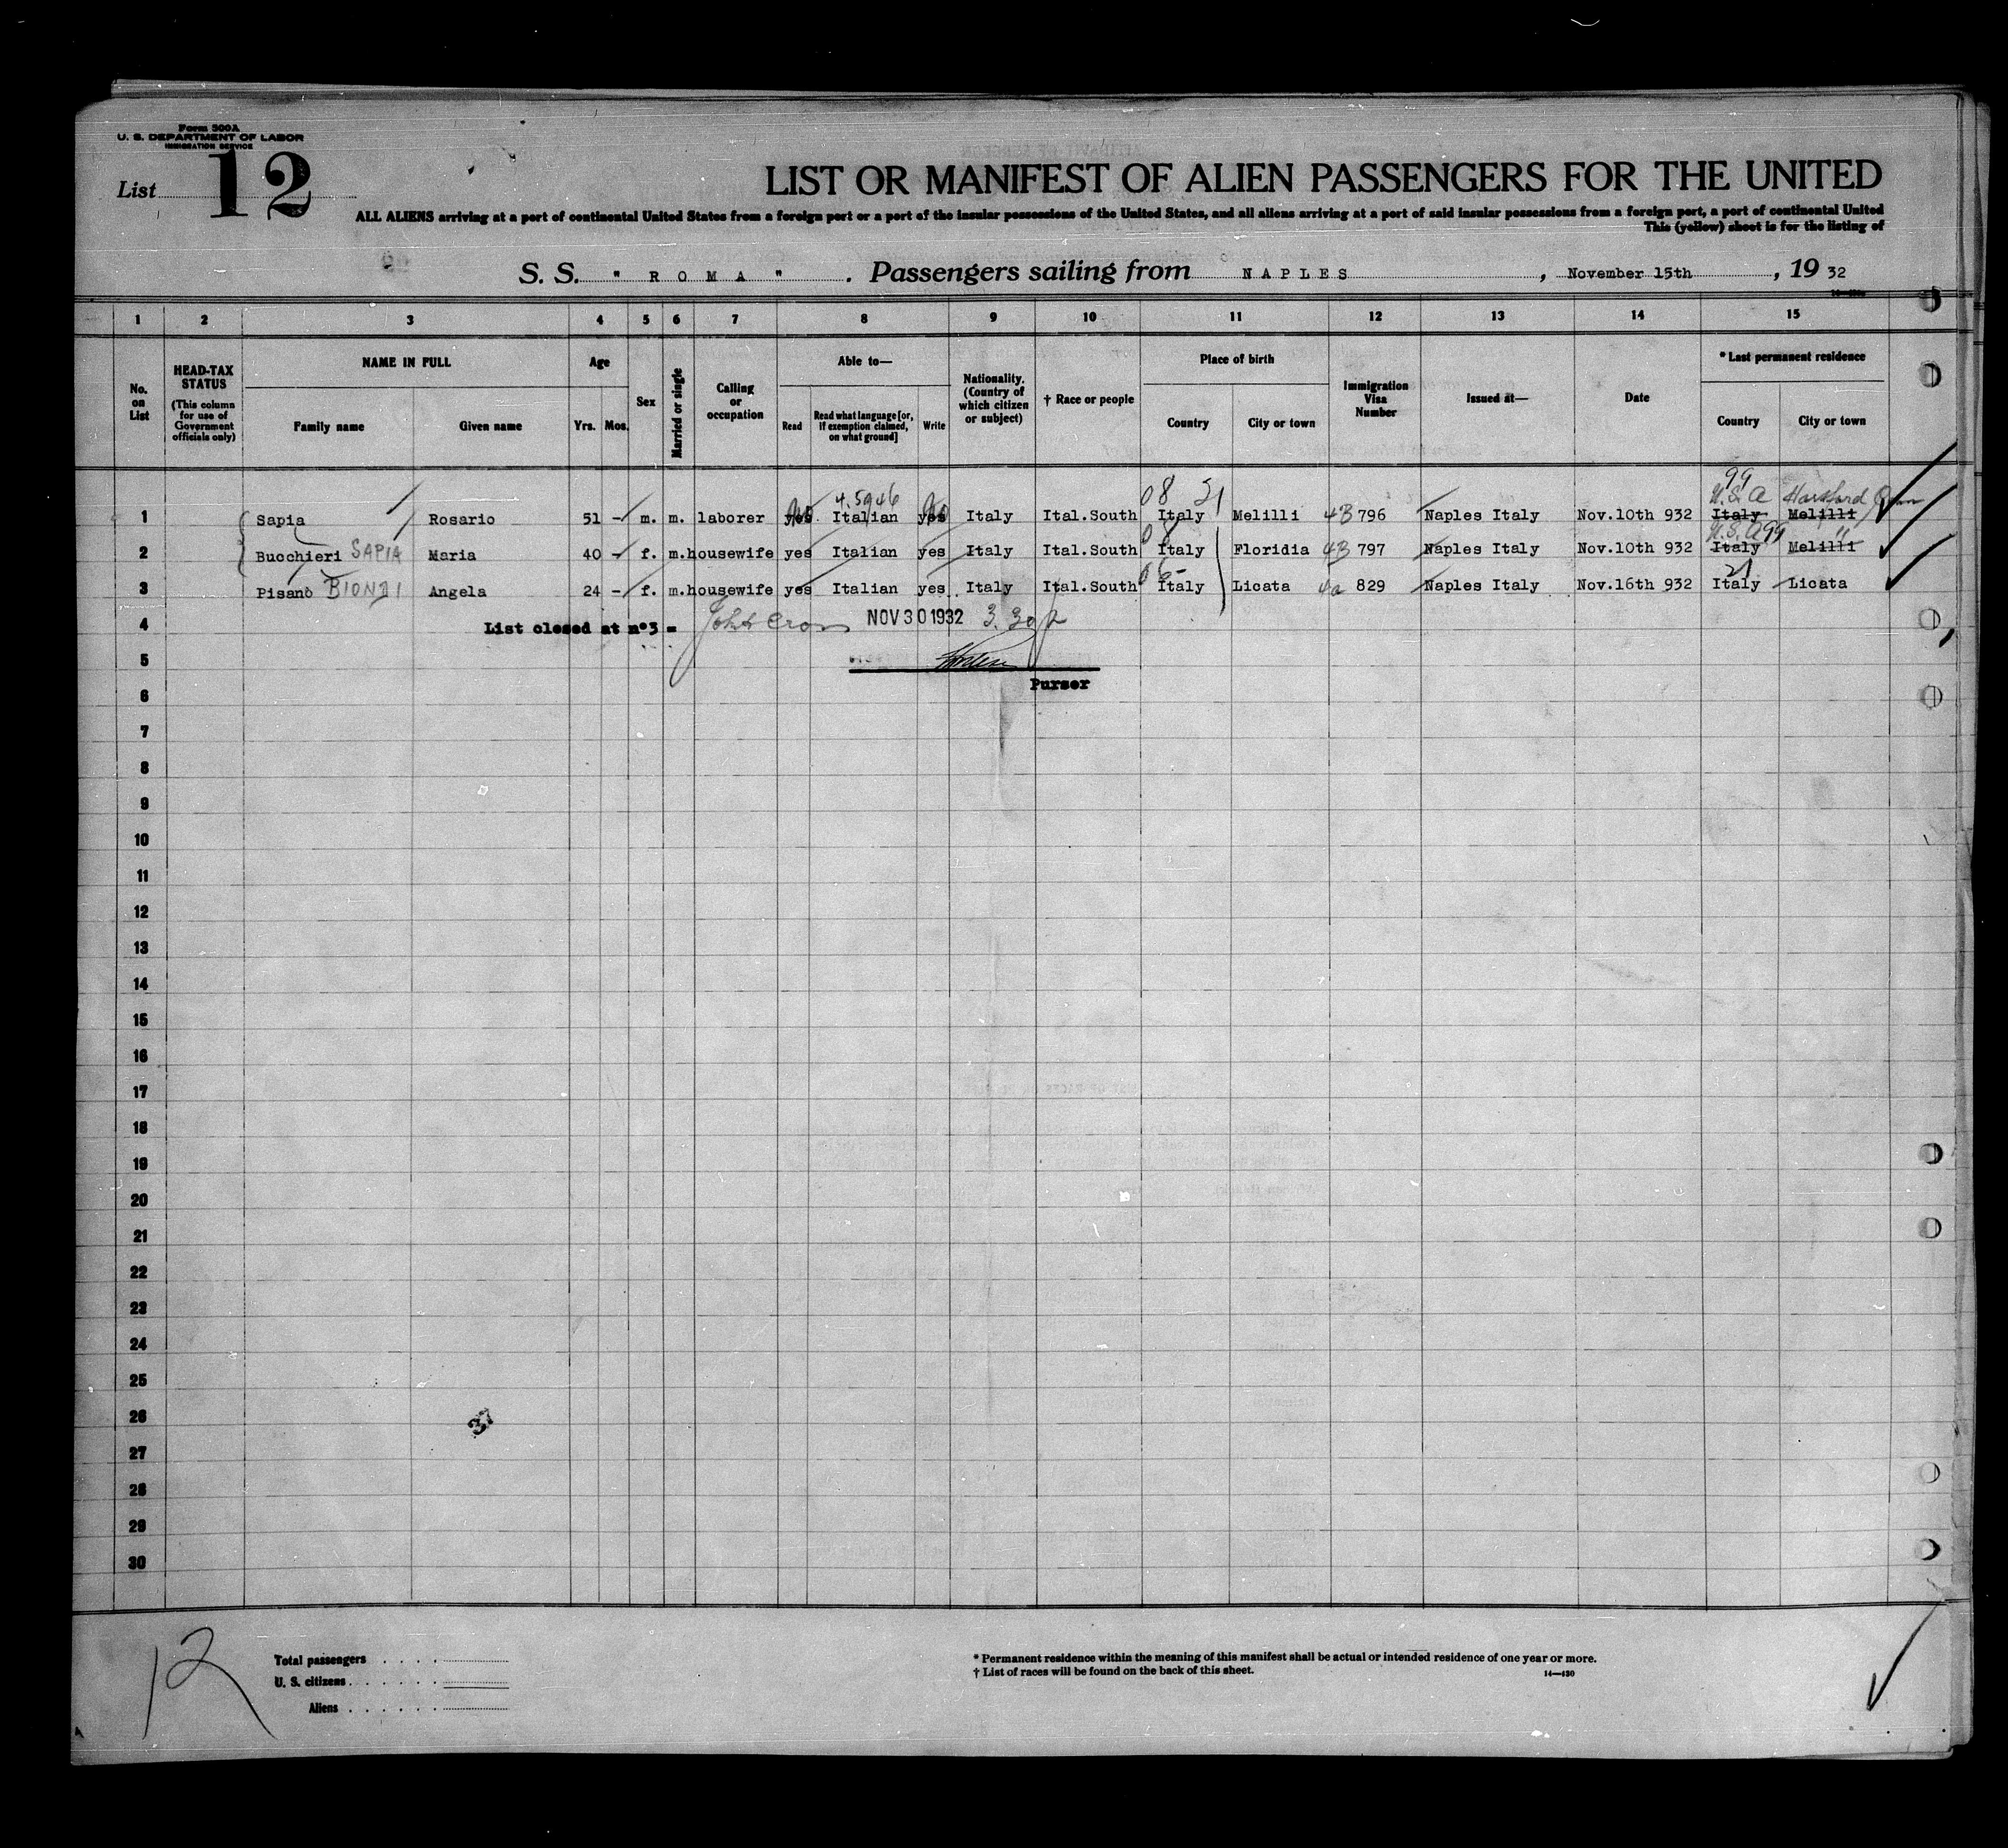 Form 500A
U. S. DEPARTMENT OF LABOR
IMMIGRATION SERVICE
List 12
LIST OR MANIFEST OF ALIEN PASSENGERS FOR THE UNITED
ALL ALIENS arriving at a port of continental United States from a foreign port or a port of the insular possessions of the United States, and all aliens arriving at a port of said insular possessions from a foreign port, a port of continental United
This (yellow) sheet is for the listing of
S. S. " R O M A " . Passengers sailing from N A P L E S , November 15th , 19 32
1 2 3 4 5 6 7 8 9 10 11 12 13 14 15
No. on List
HEAD-TAX STATUS (This column for use of Government officials only)
NAME IN FULL
Family name Given name
Age
Yrs. Mos.
Sex
Married or single
Calling or occupation
Able to—
Read Read what language [or, if exemption claimed, on what ground] Write
Nationality. (Country of which citizen or subject)
† Race or people
Place of birth
Country City or town
Immigration Visa Number
Issued at—
Date
* Last permanent residence
Country City or town
4.5946 08 21 99 U.S.A Hartford
1 Sapia Rosario 51 - m. m. laborer yes Italian yes Italy Ital.South Italy Melilli 4B 796 Naples Italy Nov.10th 932 Italy Melilli
08 U.S.A 99 "
2 Bucchieri SAPIA Maria 40 - f. m. housewife yes Italian yes Italy Ital.South Italy Floridia 4B 797 Naples Italy Nov.10th 932 Italy Melilli
21
3 Pisano BIONDI Angela 24 - f. m. housewife yes Italian yes Italy Ital.South Italy Licata 4a 829 Naples Italy Nov.16th 932 Italy Licata
4 List closed at n°3 = NOV 30 1932 3.30 p
5
6 Purser
7
8
9
10
11
12
13
14
15
16
17
18
19
20
21
22
23
24
25
26 37
27
28
29
30
12
Total passengers
U. S. citizens
Aliens
* Permanent residence within the meaning of this manifest shall be actual or intended residence of one year or more.
† List of races will be found on the back of this sheet. 14—430